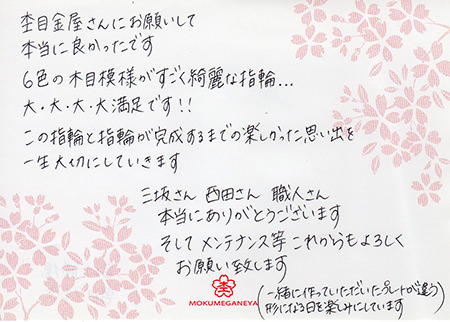 杢目金屋さんにお願いして
本当に良かったです
6色の木目模様がすごく綺麗な指輪...
大・大・大・大満足です!!
この指輪と指輪が完成するまでの楽しかった思い出を
一生大切にしていきます
三坂さん 西田さん 職人さん
本当にありがとうございます
そしてメンテナンス等これからもよろしく
お願い致します
(一緒に作っていただいたプレートが違う
形になる日を楽しみにしています)
MOKUMEGANEYA